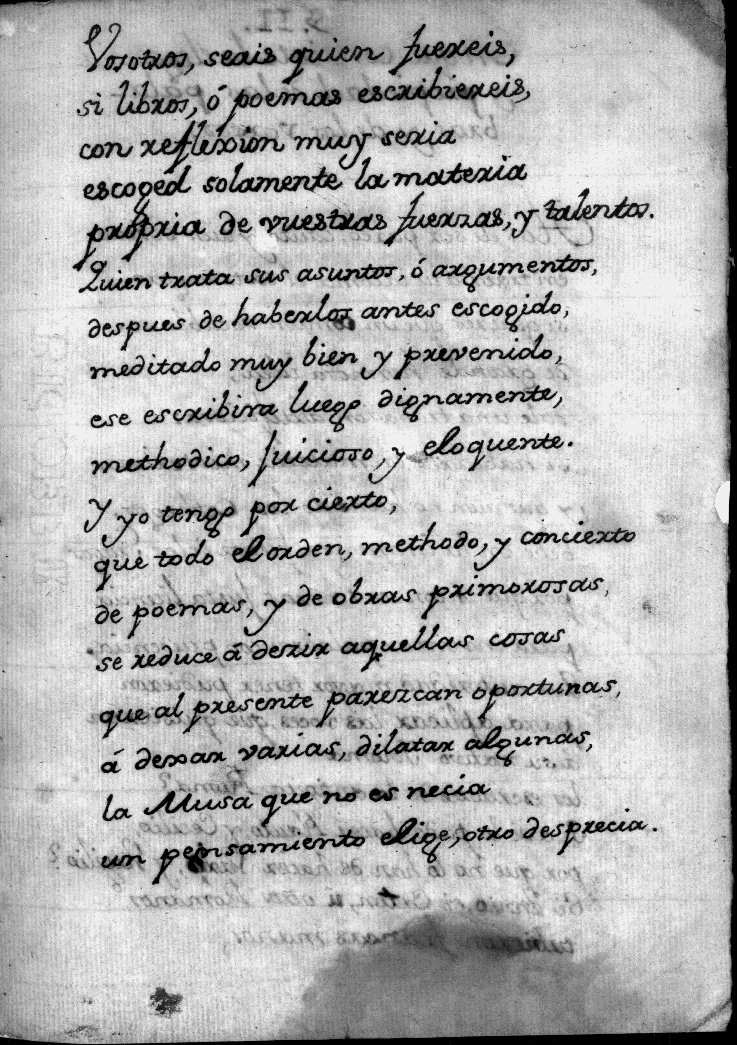 Vosotros, seais quien fuereis,
si libros, ó poemas escribiereis,
con reflexión muy seria
escoged solamente la materia
propria de vuestras fuerzas, y talentos.
Quien trata sus asuntos, ó argumentos,
despues de haberlos antes escogido,
meditado muy bien y prevenido,
ese escribira luego dignamente,
methodico, juicioso, y eloquente.
Y yo tengo por cierto,
que todo el orden, methodo, y concierto
de poemas, y de obras primorosas,
se reduce á dezir aquellas cosas
que al presente parezcan oportunas,
á dexar varias, dilatar algunas,
la Musa que no es necia
un pensamiento elige, otro desprecia.